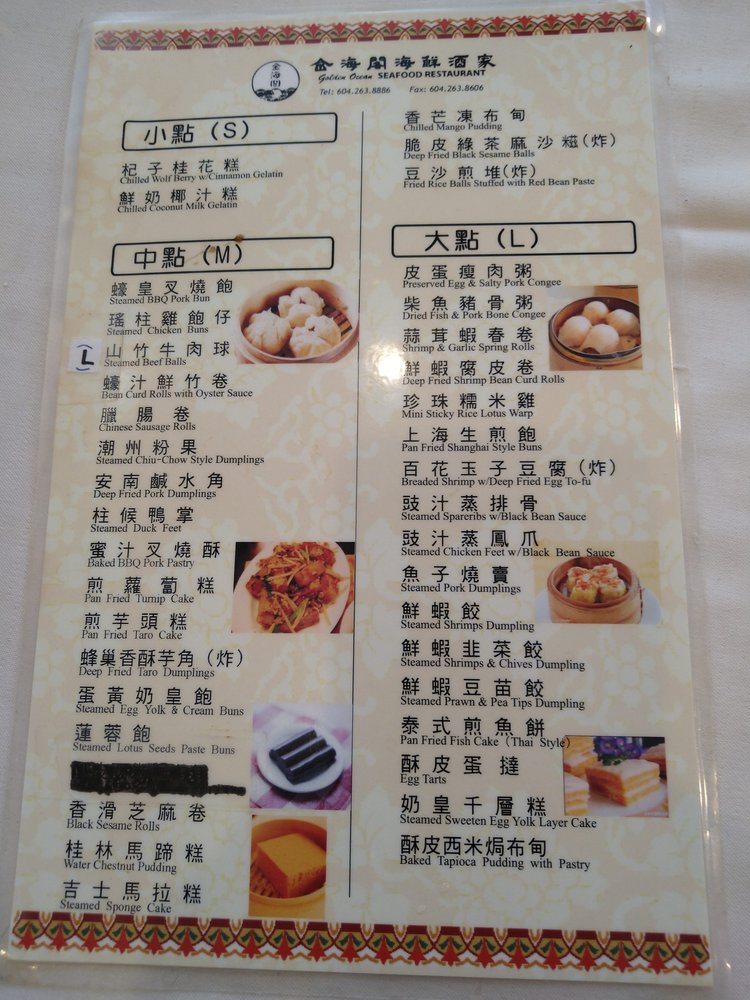 金海閣
金海閣海鮮酒家
Golden Ocean SEAFOOD RESTAURANT
Tel: 604.263.8886 Fax: 604.263.8606
小點 (S)
杞子桂花糕
Chilled Wolf Berry w/Cinnamon Gelatin
鮮奶椰汁糕
Chilled Coconut Milk Gelatin
中點 (M)
蠔皇叉燒飽
Steamed BBQ Pork Bun
瑤柱雞飽仔
Steamed Chicken Buns
(L)
山竹牛肉球
Steamed Beef Balls
蠔汁鮮竹卷
Bean Curd Rolls with Oyster Sauce
臘腸卷
Chinese Sausage Rolls
潮州粉果
Steamed Chiu-Chow Style Dumplings
安南鹹水角
Deep Fried Pork Dumplings
柱候鴨掌
Steamed Duck Feet
蜜汁叉燒酥
Baked BBQ Pork Pastry
煎蘿蔔糕
Pan Fried Turnip Cake
煎芋頭糕
Pan Fried Taro Cake
蜂巢香酥芋角 (炸)
Deep Fried Taro Dumplings
蛋黃奶皇飽
Steamed Egg Yolk & Cream Buns
蓮蓉飽
Steamed Lotus Seeds Paste Buns
香滑芝麻卷
Black Sesame Rolls
桂林馬蹄糕
Water Chestnut Pudding
吉士馬拉糕
Steamed Sponge Cake
香芒凍布甸
Chilled Mango Pudding
脆皮綠茶麻沙糍(炸)
Deep Fried Black Sesame Balls
豆沙煎堆(炸)
Fried Rice Balls Stuffed with Red Bean Paste
大點 (L)
皮蛋瘦肉粥
Preserved Egg & Salty Pork Congee
柴魚豬骨粥
Dried Fish & Pork Bone Congee
蒜茸蝦春卷
Shrimp & Garlic Spring Rolls
鮮蝦腐皮卷
Deep Fried Shrimp Bean Curd Rolls
珍珠糯米雞
Mini Sticky Rice Lotus Warp
上海生煎飽
Pan Fried Shanghai Style Buns
百花玉子豆腐(炸)
Breaded Shrimp w/Deep Fried Egg To-fu
豉汁蒸排骨
Steamed Spareribs w/Black Bean Sauce
豉汁蒸鳳爪
Steamed Chicken Feet w/Black Bean Sauce
魚子燒賣
Steamed Pork Dumplings
鮮蝦餃
Steamed Shrimps Dumpling
鮮蝦韭菜餃
Steamed Shrimps & Chives Dumpling
鮮蝦豆苗餃
Steamed Prawn & Pea Tips Dumpling
泰式煎魚餅
Pan Fried Fish Cake (Thai Style)
酥皮蛋撻
Egg Tarts
奶皇千層糕
Steamed Sweeten Egg Yolk Layer Cake
酥皮西米焗布甸
Baked Tapioca Pudding with Pastry